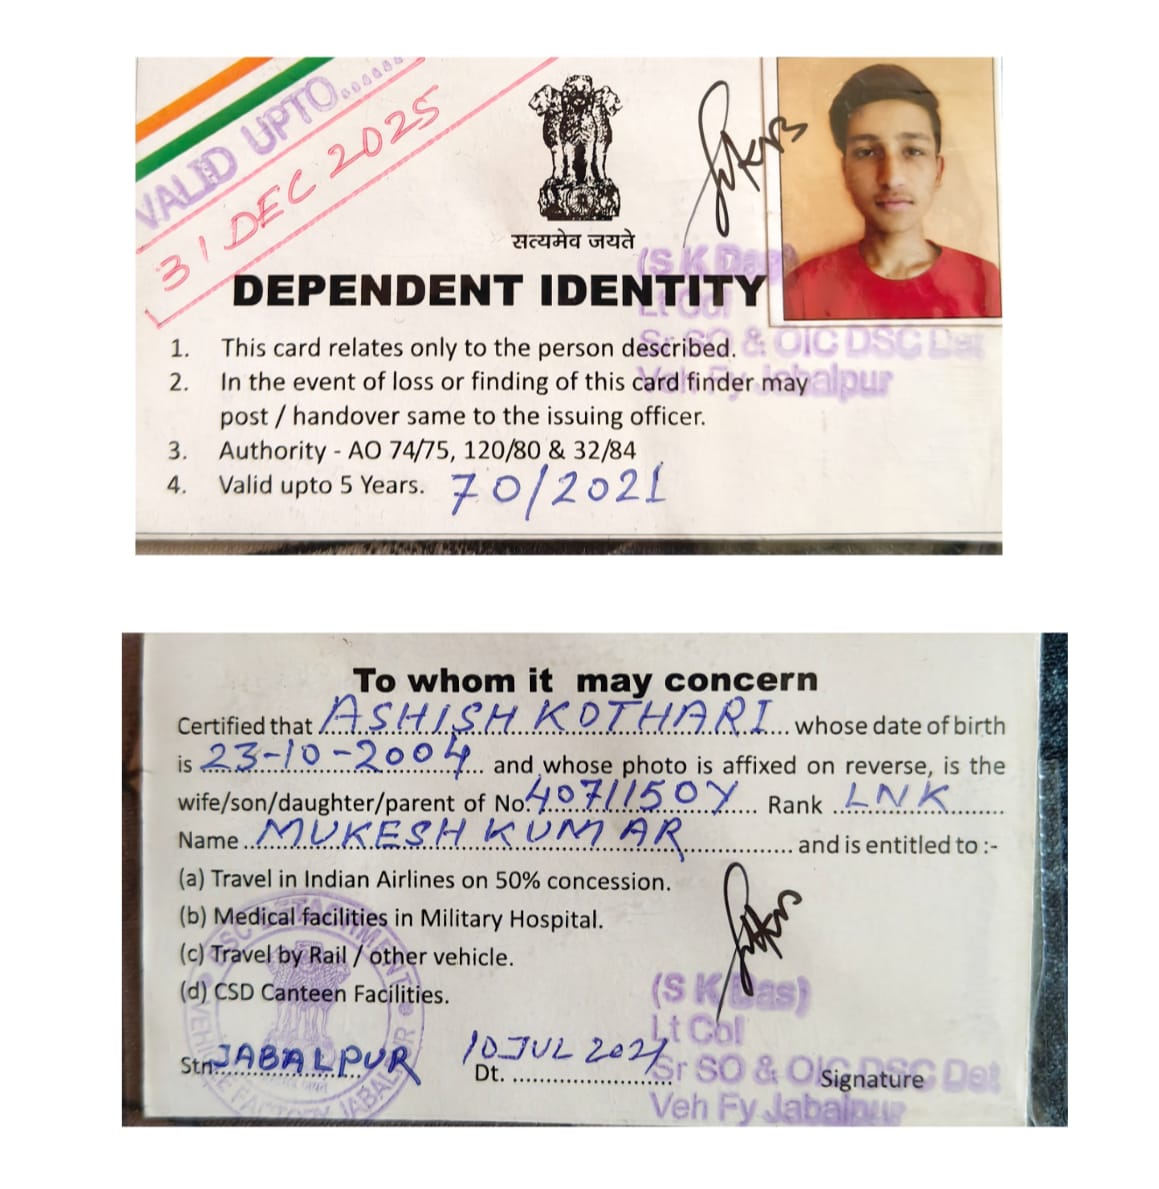 VALID UPTO........
31 DEC 2025
सत्यमेव जयते
DEPENDENT IDENTITY
(S K Das)
Lt Col
Sr SO & OIC DSC Det
Veh Fy Jabalpur
1. This card relates only to the person described.
2. In the event of loss or finding of this card finder may
post / handover same to the issuing officer.
3. Authority - AO 74/75, 120/80 & 32/84
4. Valid upto 5 Years. 70/2021
To whom it may concern
Certified that ASHISH KOTHARI... whose date of birth
is 23-10-2004... and whose photo is affixed on reverse, is the
wife/son/daughter/parent of No. 4071150Y.... Rank ..LNK........
Name ..MUKESH KUMAR............... and is entitled to :-
(a) Travel in Indian Airlines on 50% concession.
(b) Medical facilities in Military Hospital.
(c) Travel by Rail / other vehicle.
(d) CSD Canteen Facilities.
(S K Das)
Lt Col
Stn. JABALPUR Dt. 10 JUL 2021
Sr SO & OIC DSC Det
Signature
Veh Fy Jabalpur
DSC DETACHMENT
VEHICLE FACTORY JABALPUR